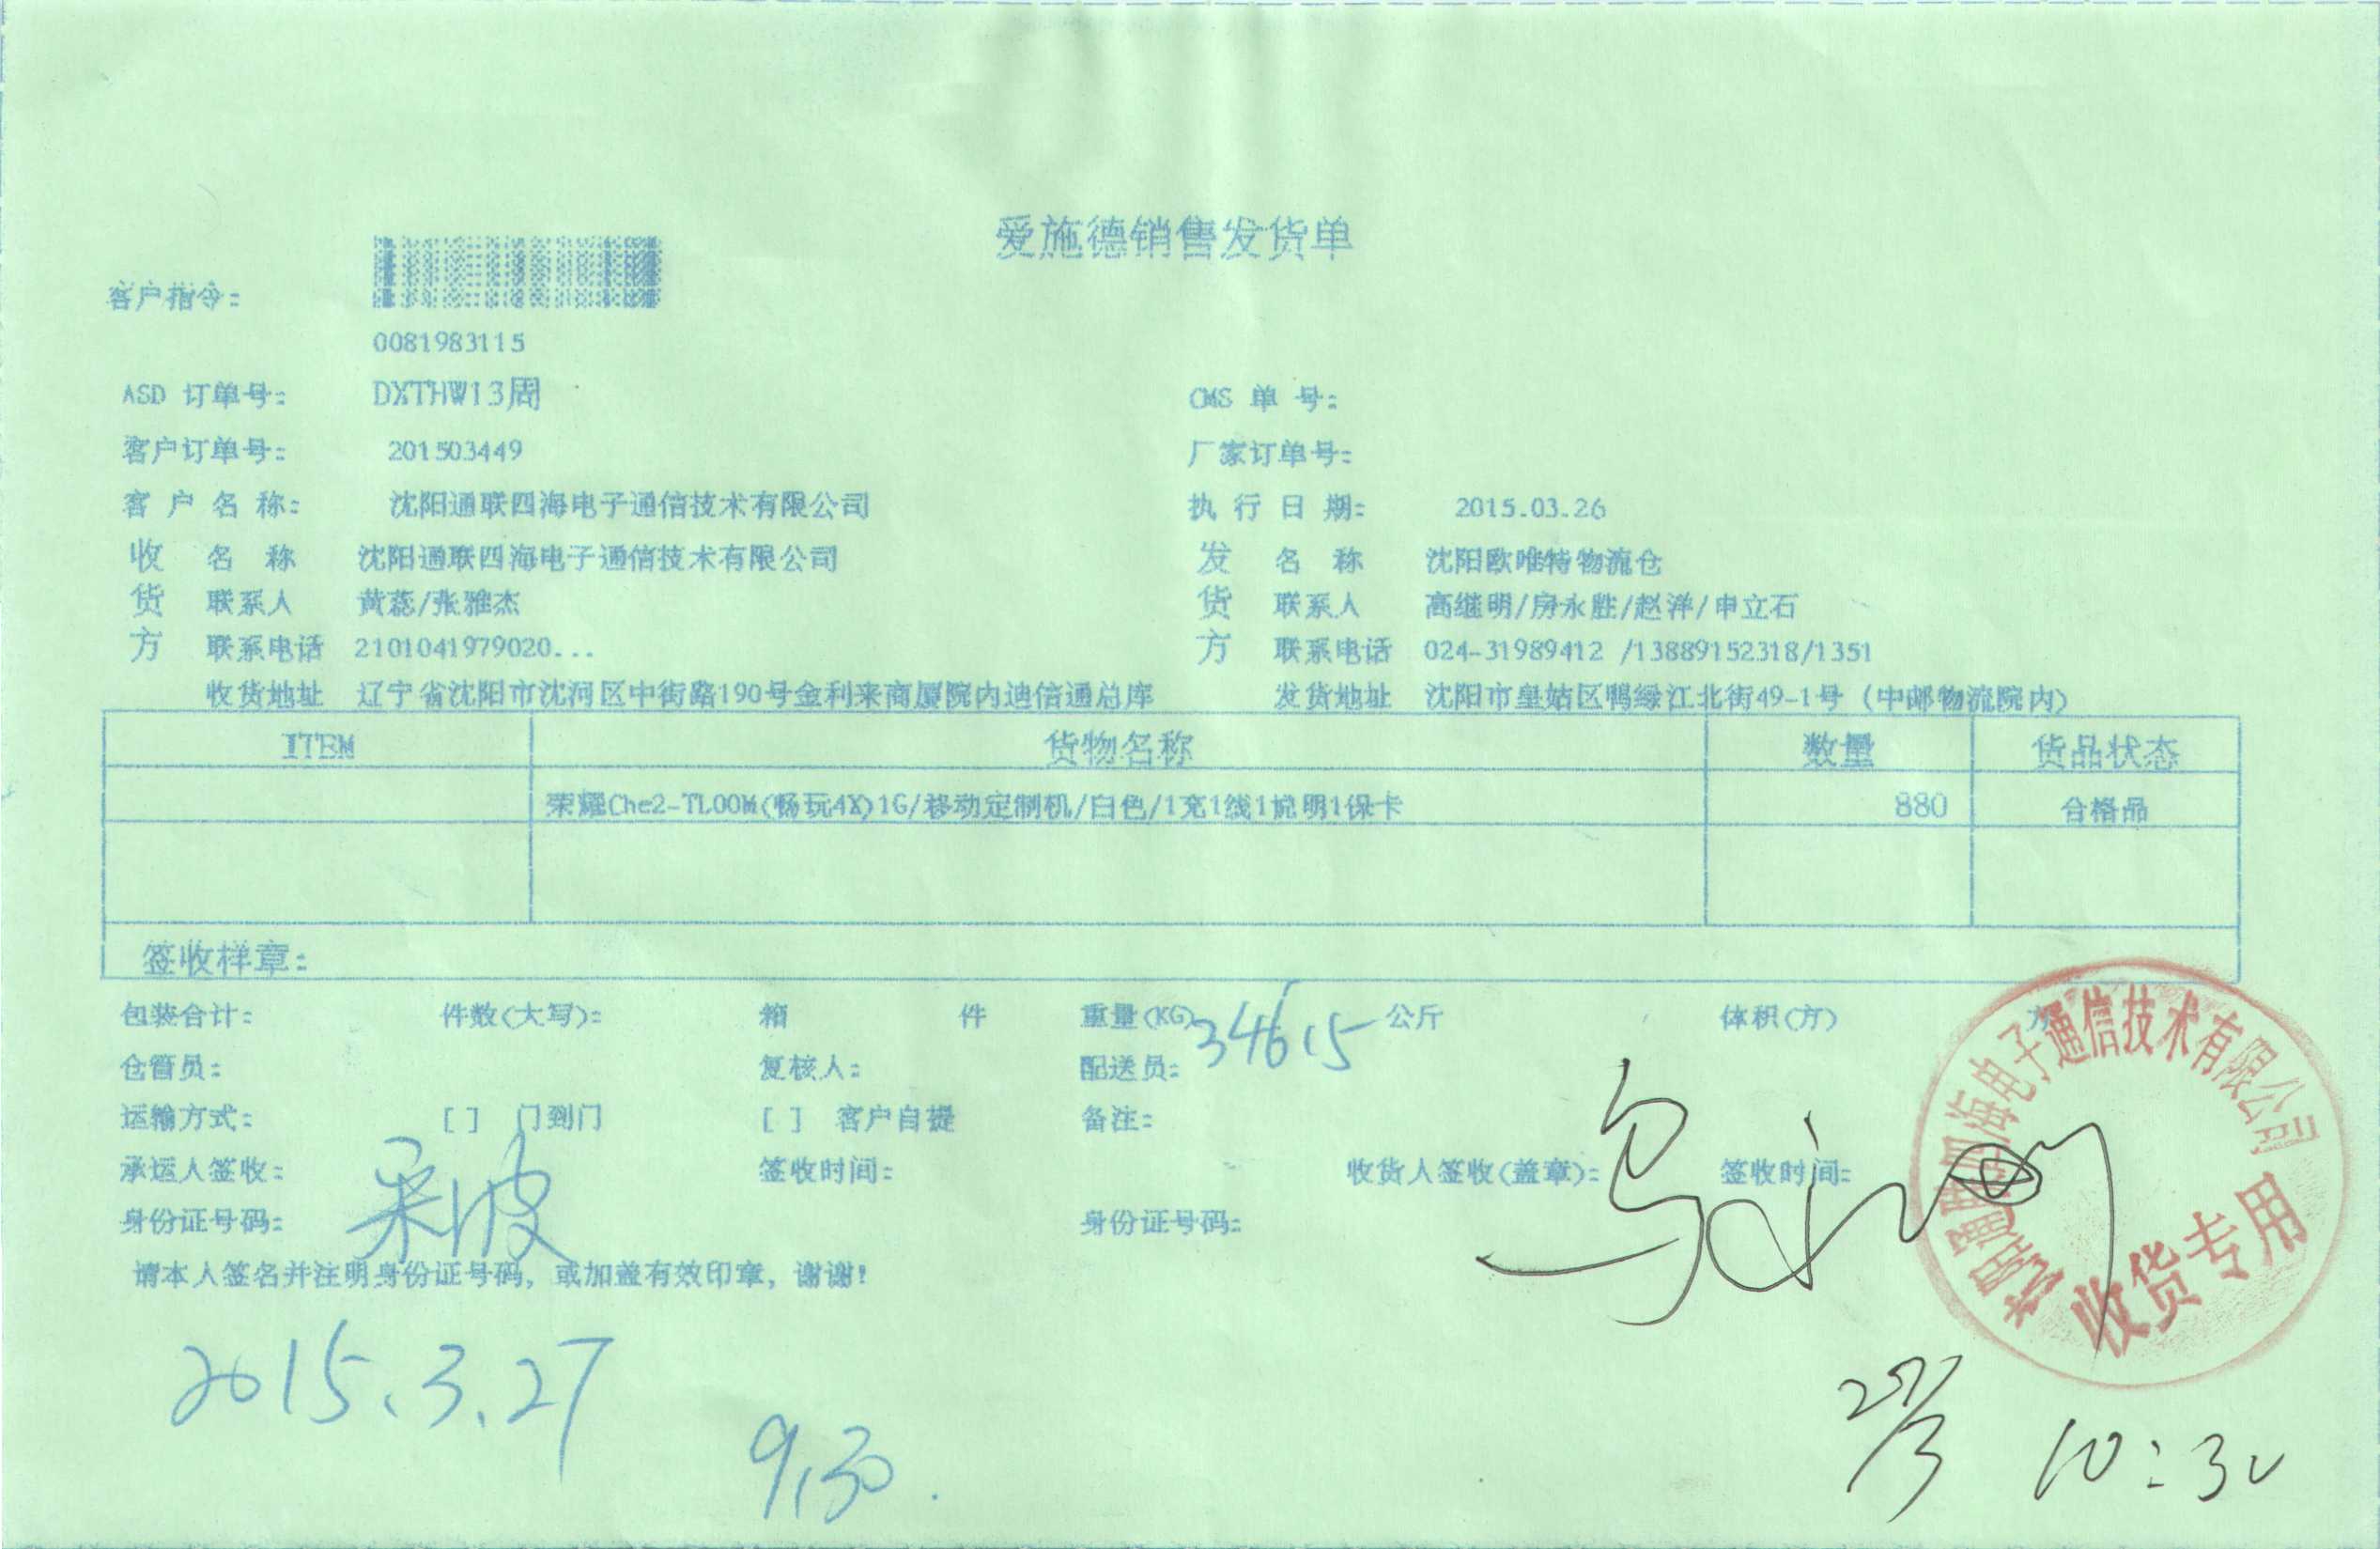 爱施德销售发货单
客户指令:
0081983115
ASD 订单号: DXTHW13周 CMS 单 号:
客户订单号: 201503449 厂家订单号:
客 户 名 称: 沈阳通联四海电子通信技术有限公司 执 行 日 期: 2015.03.26
收 名 称 沈阳通联四海电子通信技术有限公司 发 名 称 沈阳欧唯特物流仓
货 联系人 黄蕊/张雅杰 货 联系人 高继明/房永胜/赵洋/申立石
方 联系电话 2101041979020... 方 联系电话 024-31989412 /13889152318/1351
收货地址 辽宁省沈阳市沈河区中街路190号金利来商厦院内迪信通总库 发货地址 沈阳市皇姑区鸭绿江北街49-1号 (中邮物流院内)
ITEM 货物名称 数量 货品状态
荣耀Che2-TL00M(畅玩4X)1G/移动定制机/白色/1充1线1说明1保卡 880 合格品
签收样章:
包装合计: 件数(大写): 箱 件 重量(KG) 34615 公斤 体积(方) 方
仓管员: 复核人: 配送员:
运输方式: [ ] 门到门 [ ] 客户自提 备注:
承运人签收: 签收时间: 收货人签收(盖章): 签收时间:
身份证号码: 身份证号码:
请本人签名并注明身份证号码, 或加盖有效印章, 谢谢!
沈阳通联四海电子通信技术有限公司
收货专用
2015.3.27
9:30.
27/3 10:30